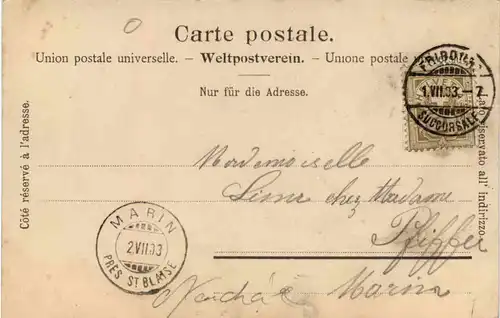 Carte postale.
Union postale universelle. – Weltpostverein. – Unione postale
Nur für die Adresse.
Côté réservé à l'adresse.
Lato riservato all' indirizzo.
FRIBOURG
1.VII.03.–7
SUCCURSALE
Mademoiselle
chez Madame
Pfiffer
Marin
MARIN
2.VII.03
PRÈS ST BLAISE